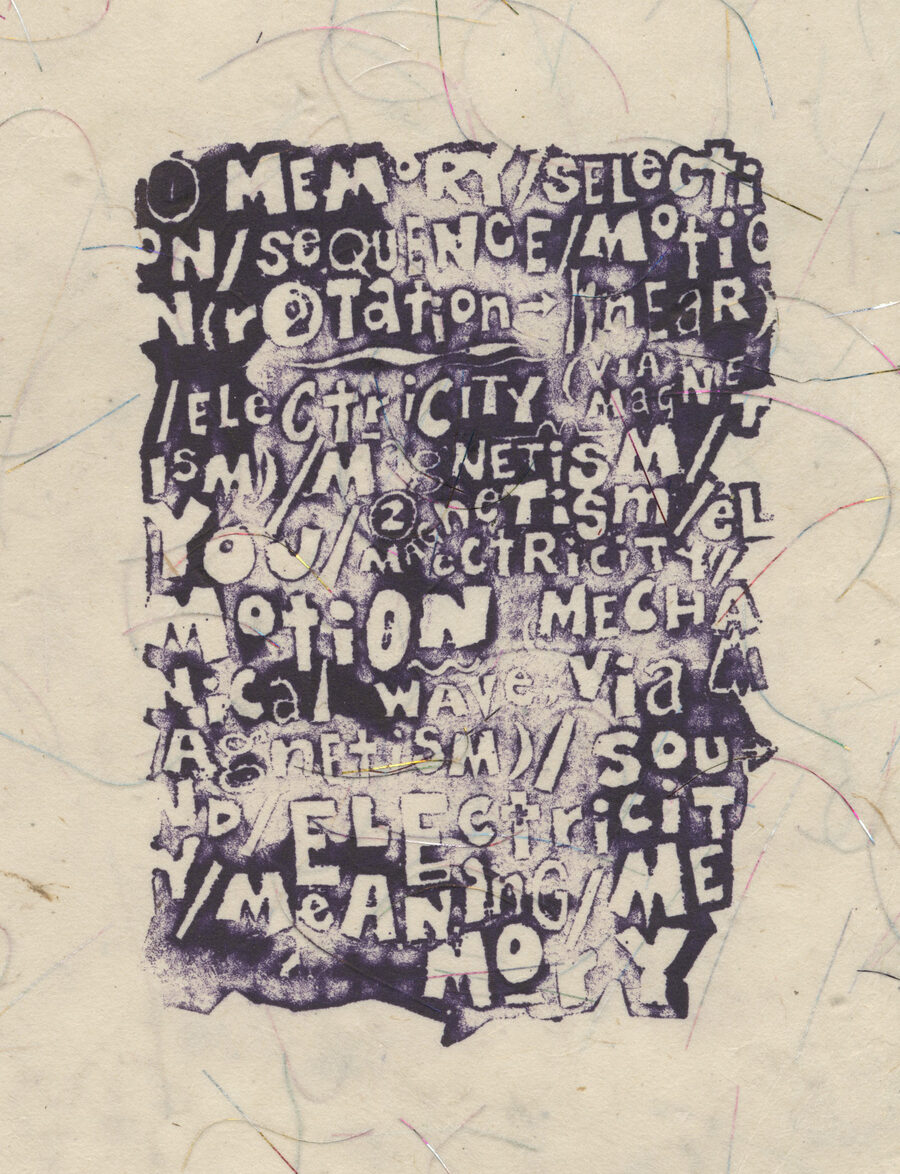 ① MEMoRY/SELecti
ON/SeQUENCE/Motio
N(rOTation→linEaR)
/ELeCtriCITY (VIA MAGNET
ISM)/MAGNETiSM/
YOU/② MAGneTiSm/eL
ectRiciTY/
MOtiON (MECHA
NiCal WAVe via M
AGnEtiSM)/SOU
ND/ELEctricit
Y/MeANinG/ME
MOrY